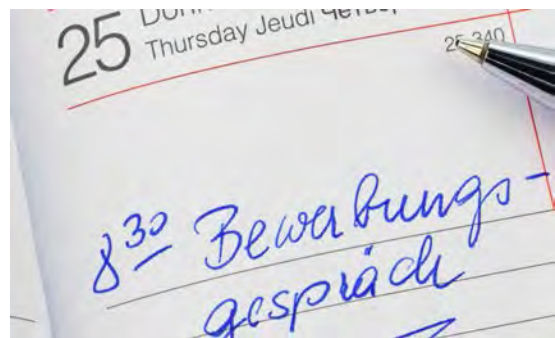 25
Thursday Jeudi
25-340
8 30 Bewerbungs-
gespräch